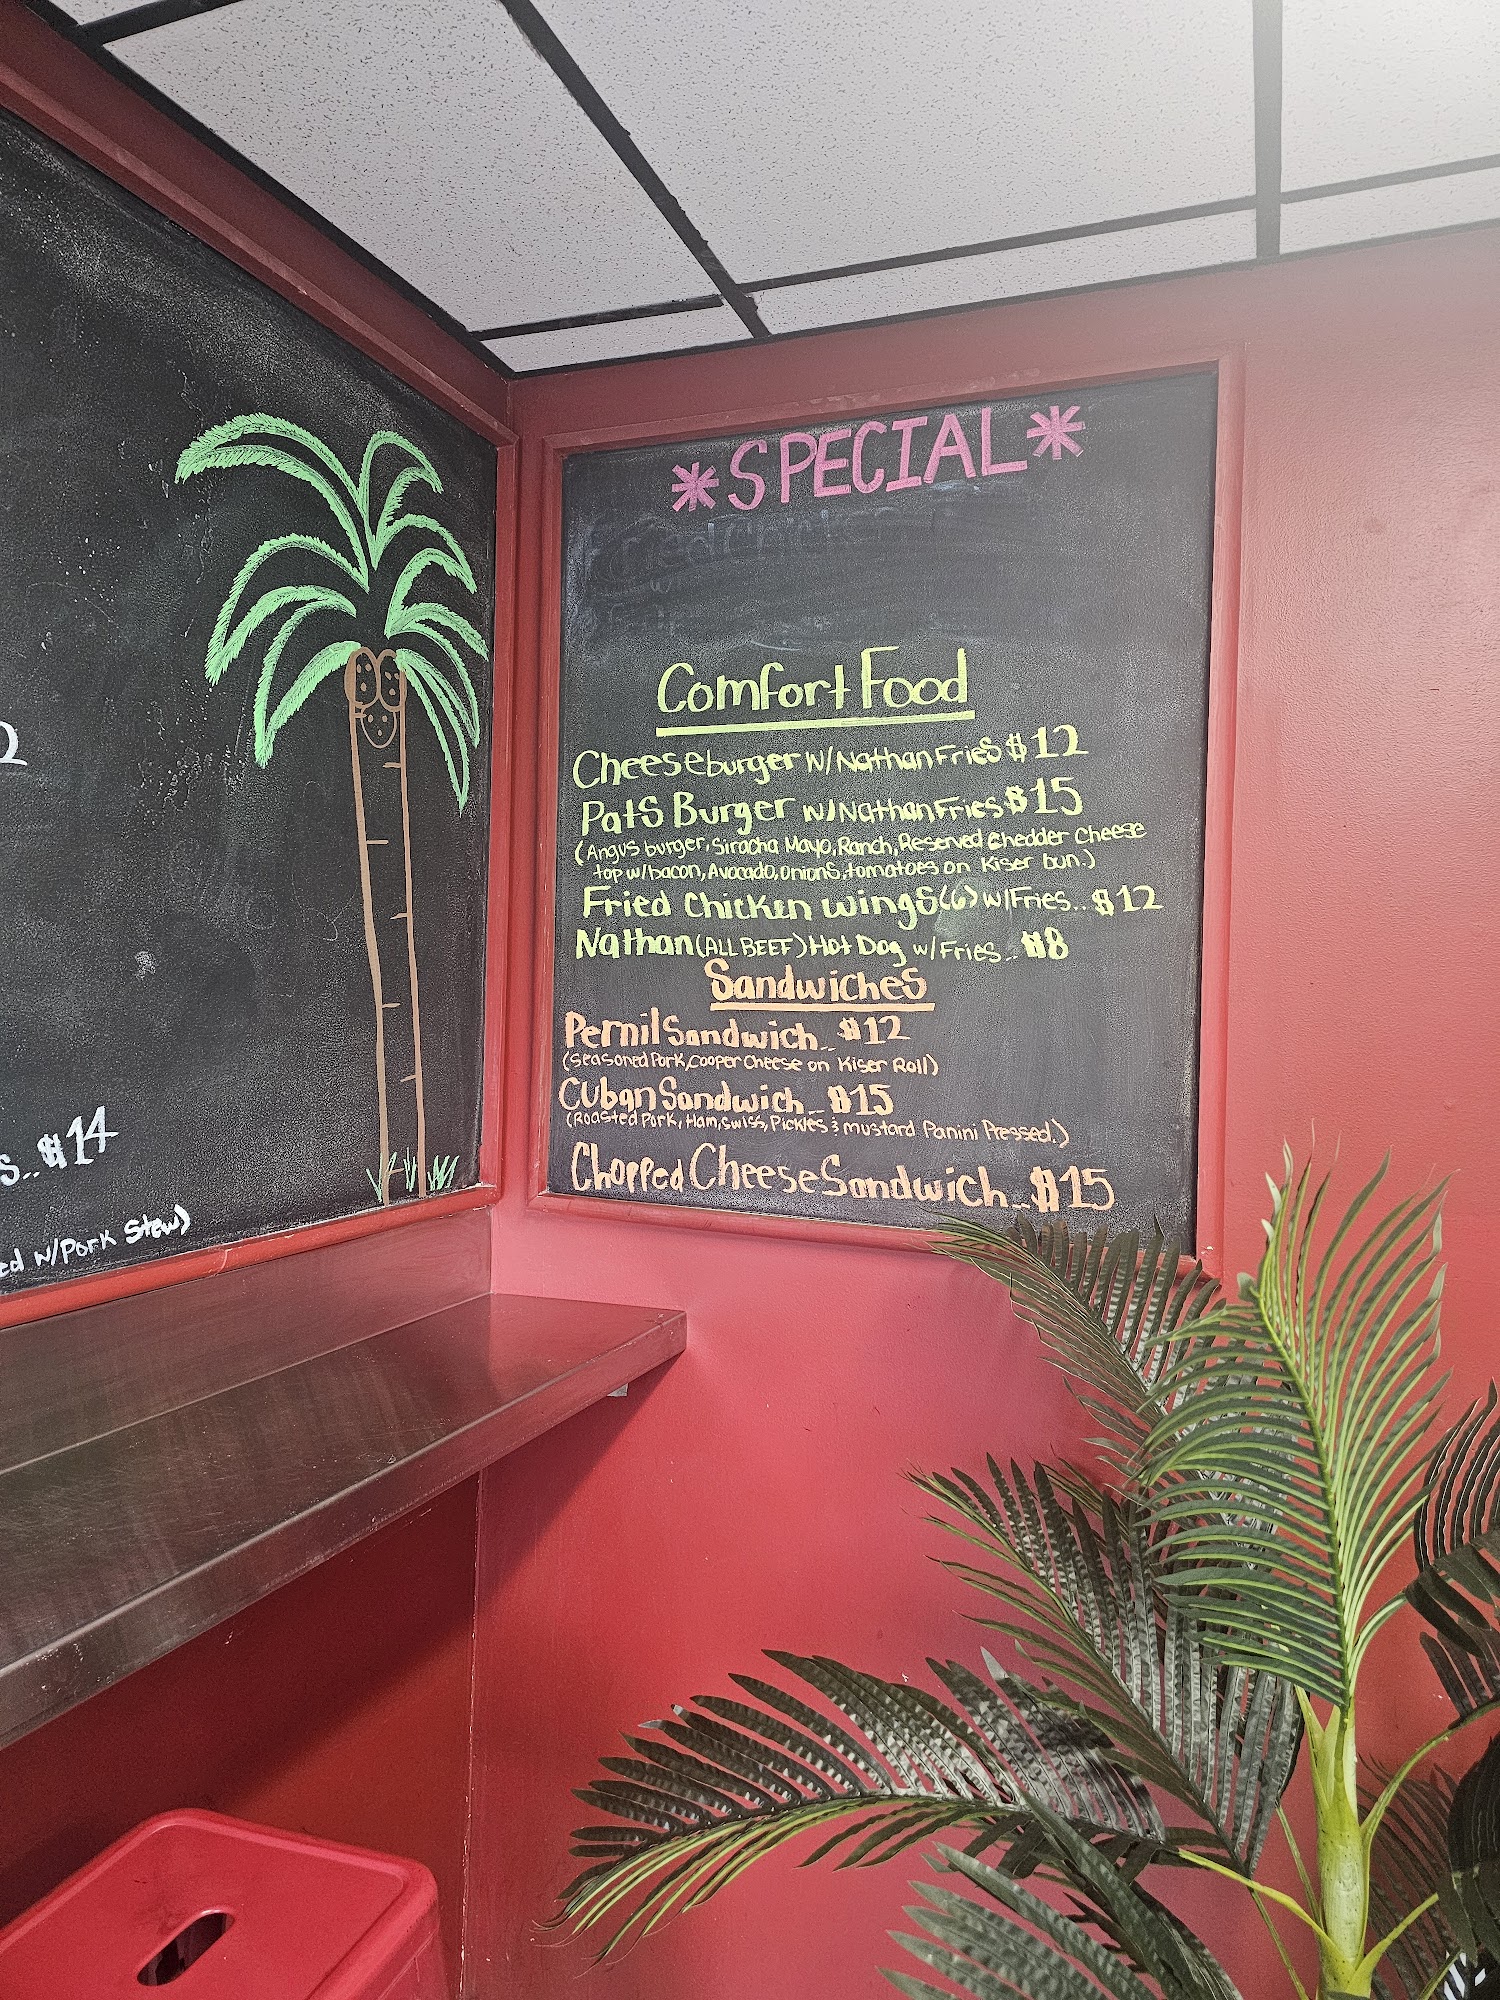 2
S..$14
ed w/Pork Stew)
*SPECIAL*
Comfort Food
Cheeseburger w/Nathan Fries $12
Pats Burger w/Nathan Fries $15
(Angus burger, Siracha Mayo, Ranch, Reserved Chedder Cheese
top w/bacon, Avocado, onions, tomatoes on Kiser bun.)
Fried Chicken wings (6) w/Fries.. $12
Nathan (ALL BEEF) Hot Dog w/Fries.. $8
Sandwiches
Pernil Sandwich.. $12
(Seasoned Pork, Cooper Cheese on Kiser Roll)
Cuban Sandwich.. $15
(Roasted Pork, Ham, Swiss, Pickles & mustard Panini Pressed.)
Chopped Cheese Sandwich.. $15